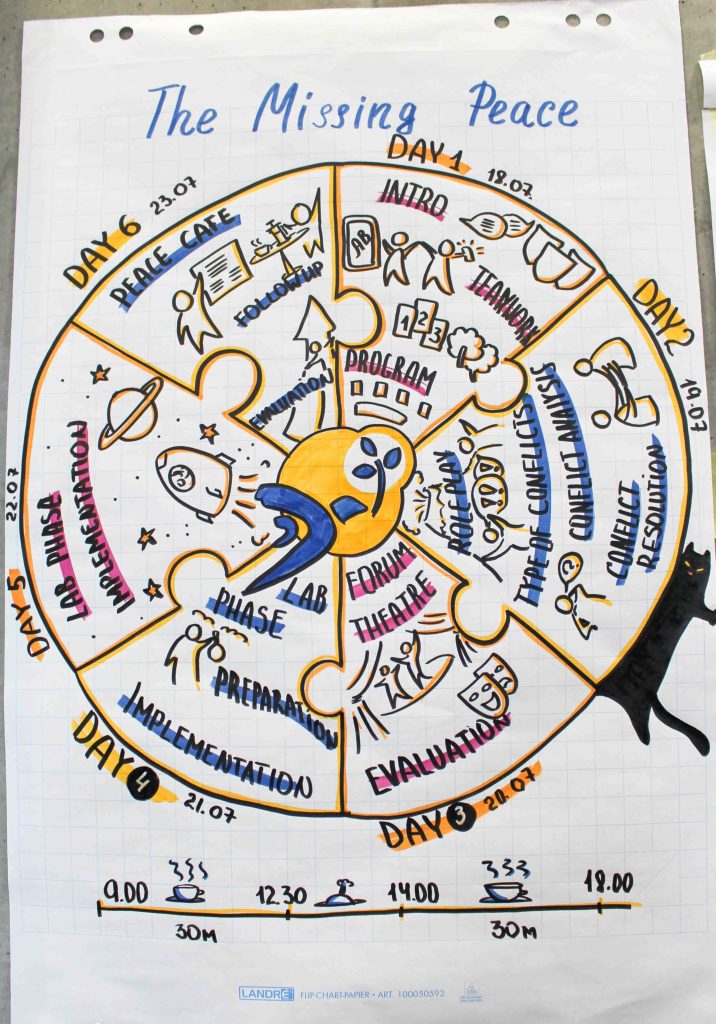 The Missing Peace
DAY 1
18.07.
INTRO
AB
TEAMWORK
1 2 3
PROGRAM
DAY 2
19.07
ROLE PLAY
TYPE OF CONFLICTS
CONFLICT ANALYSIS
CONFLICT
RESOLUTION
?
DAY 3
20.07
FORUM
THEATRE
EVALUATION
DAY 4
21.07
LAB
PHASE
PREPARATION
IMPLEMENTATION
DAY 5
22.07
LAB PHASE
IMPLEMENTATION
DAY 6
23.07
PEACE CAFE
FOLLOWUP
EVALUATION
9.00 12.30 14.00 18.00
30M 30M
LANDRÉ FLIP-CHART-PAPIER • ART. 100050592